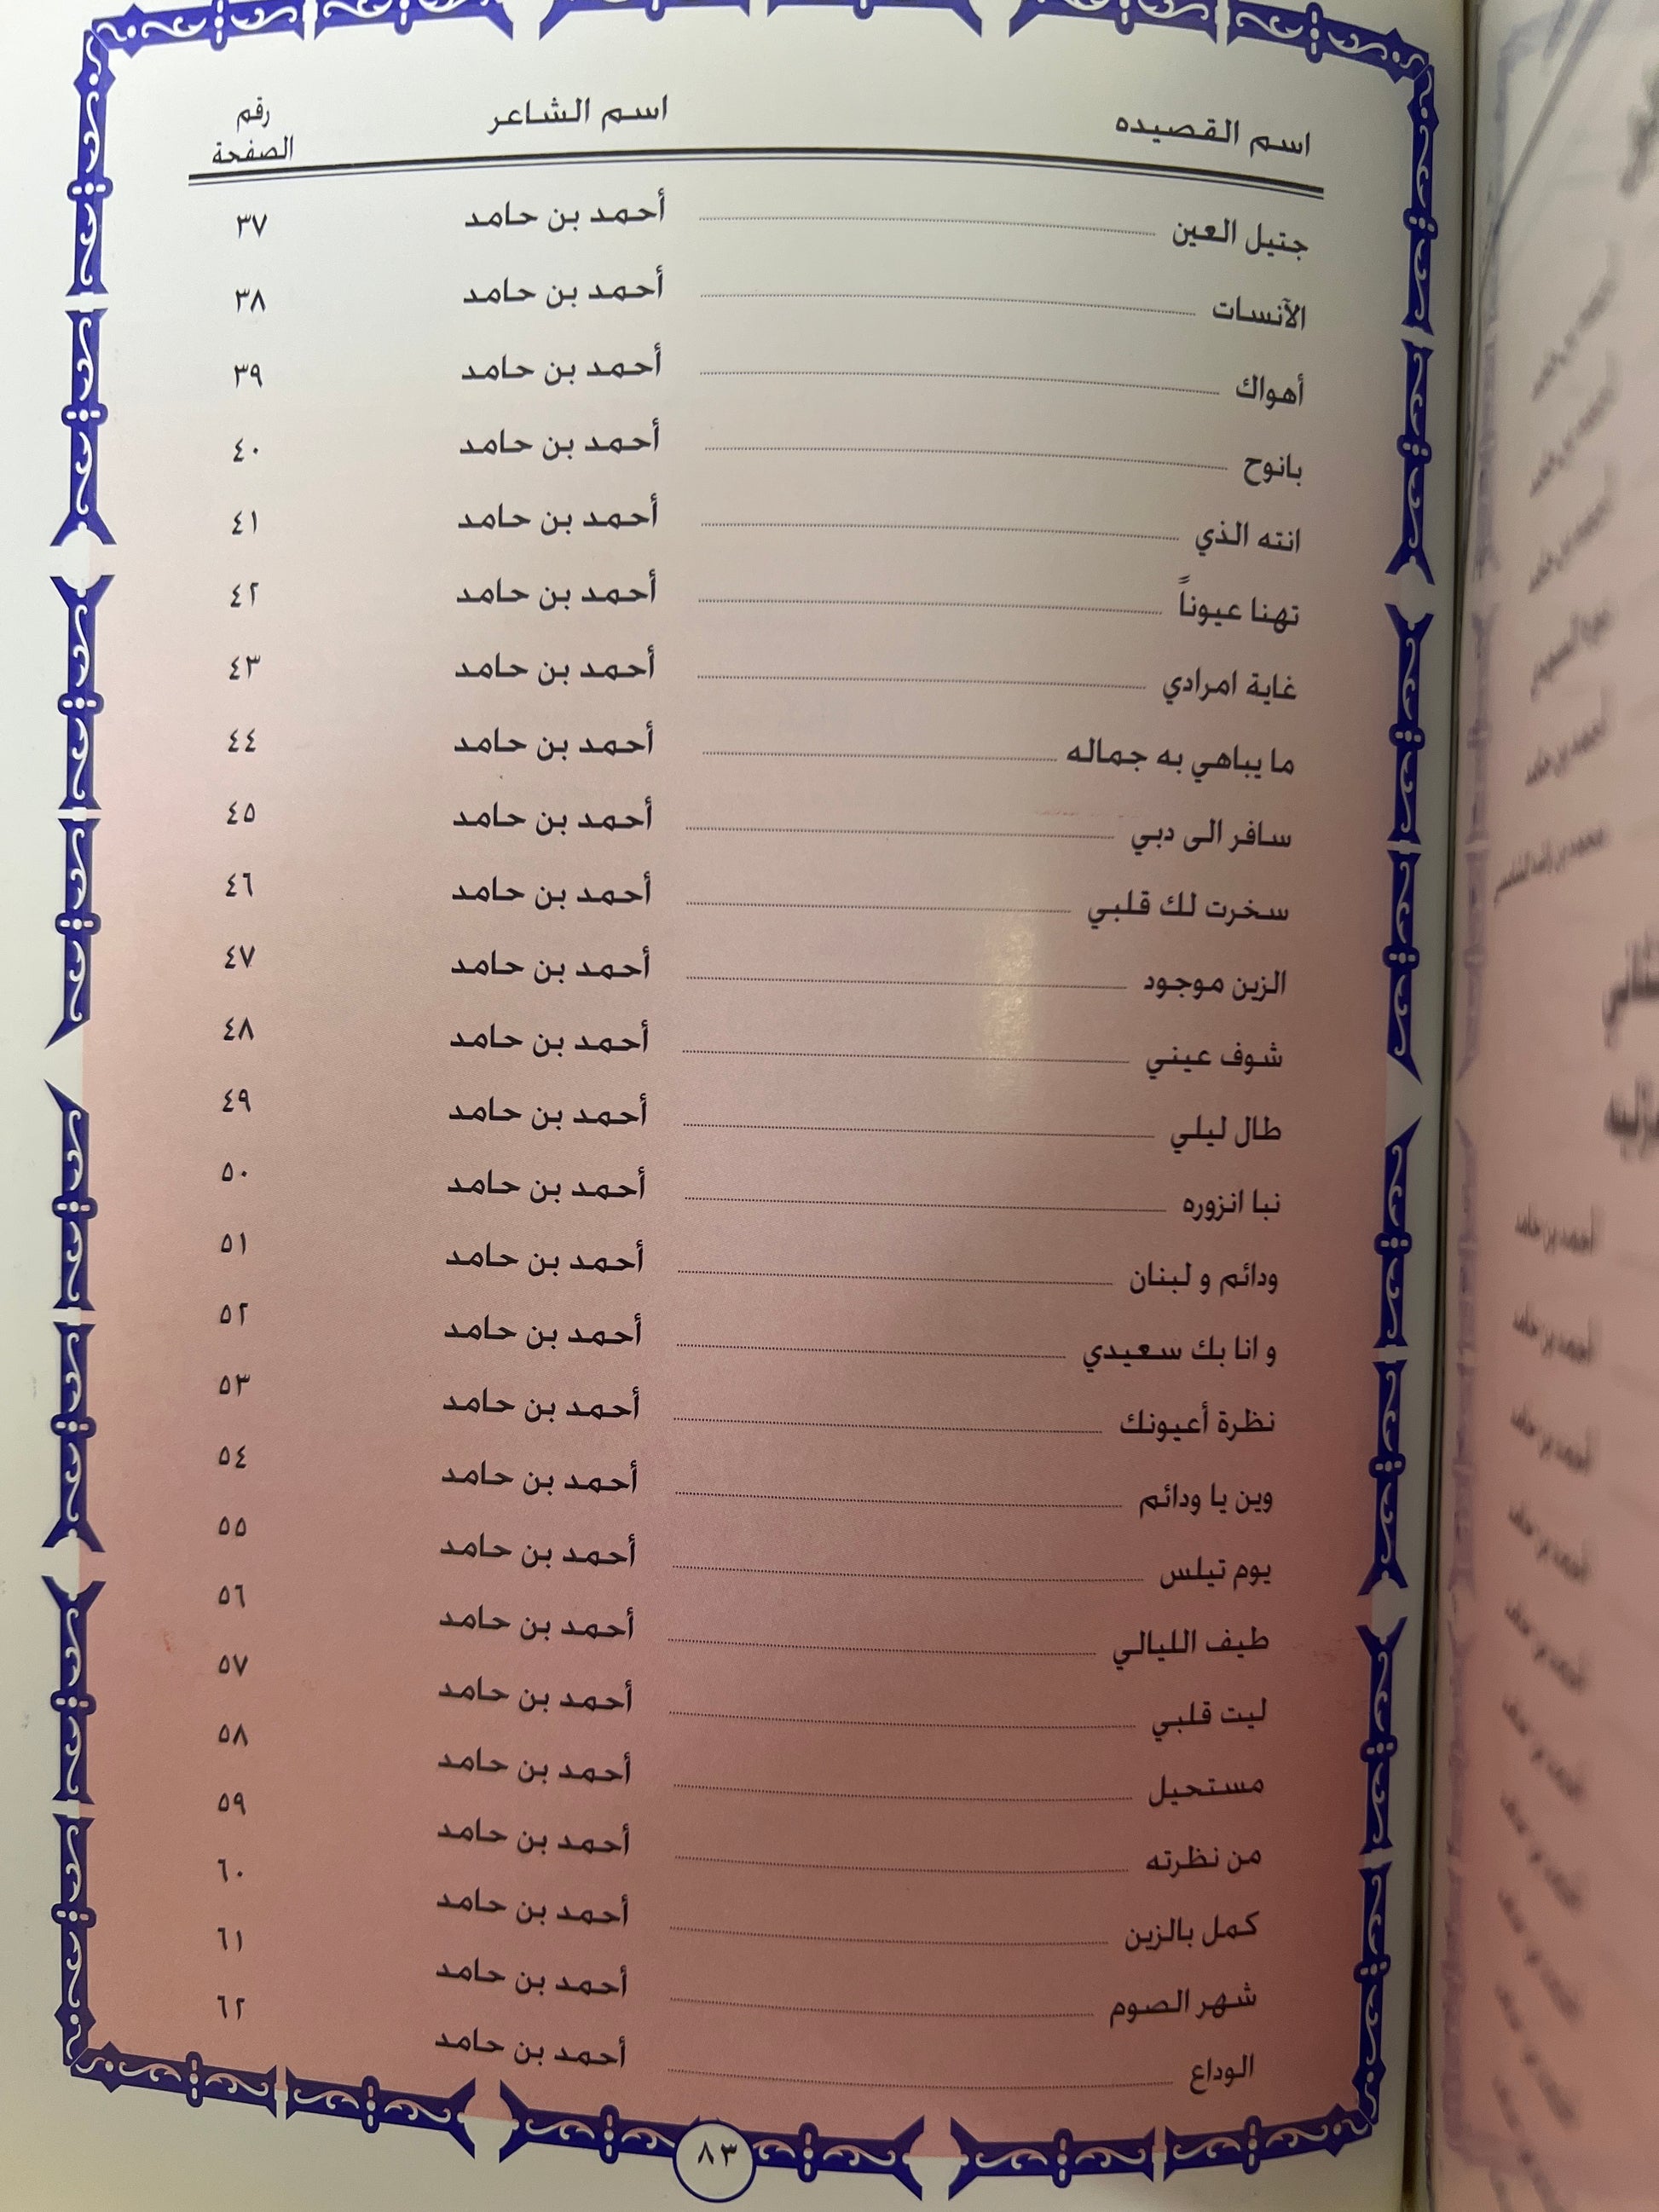 اسم القصيده اسم الشاعر رقم الصفحة
جتيل العين أحمد بن حامد ٣٧
الآنسات أحمد بن حامد ٣٨
أهواك أحمد بن حامد ٣٩
بانوح أحمد بن حامد ٤٠
انته الذي أحمد بن حامد ٤١
تهنا عيوناً أحمد بن حامد ٤٢
غاية امرادي أحمد بن حامد ٤٣
ما يباهي به جماله أحمد بن حامد ٤٤
سافر الى دبي أحمد بن حامد ٤٥
سخرت لك قلبي أحمد بن حامد ٤٦
الزين موجود أحمد بن حامد ٤٧
شوف عيني أحمد بن حامد ٤٨
طال ليلي أحمد بن حامد ٤٩
نبا انزوره أحمد بن حامد ٥٠
ودائم و لبنان أحمد بن حامد ٥١
و انا بك سعيدي أحمد بن حامد ٥٢
نظرة أعيونك أحمد بن حامد ٥٣
وين يا ودائم أحمد بن حامد ٥٤
يوم تيلس أحمد بن حامد ٥٥
طيف الليالي أحمد بن حامد ٥٦
ليت قلبي أحمد بن حامد ٥٧
مستحيل أحمد بن حامد ٥٨
من نظرته أحمد بن حامد ٥٩
كمل بالزين أحمد بن حامد ٦٠
شهر الصوم أحمد بن حامد ٦١
الوداع أحمد بن حامد ٦٢
٨٣